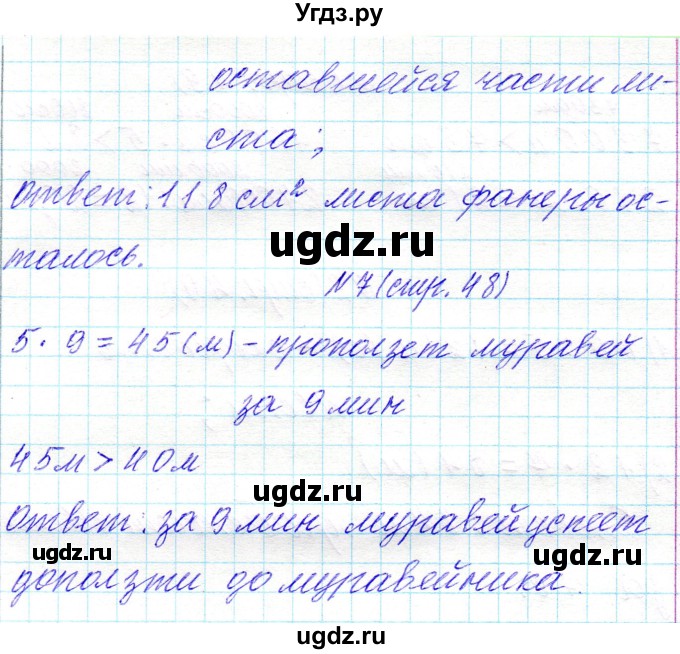 Угдз.ру
оставшейся части ли-
ста;
ответ: 118 см² листа фанеры ос-
ugdz.ru
талось.
N 7 (стр. 48)
5 · 9 = 45 (м) - проползет муравей
за 9 мин
45м > 40м
ugdz.ru
ответ: за 9 мин муравей успеет
ugdz.ru
доползти до муравейника.
ugdz.ru